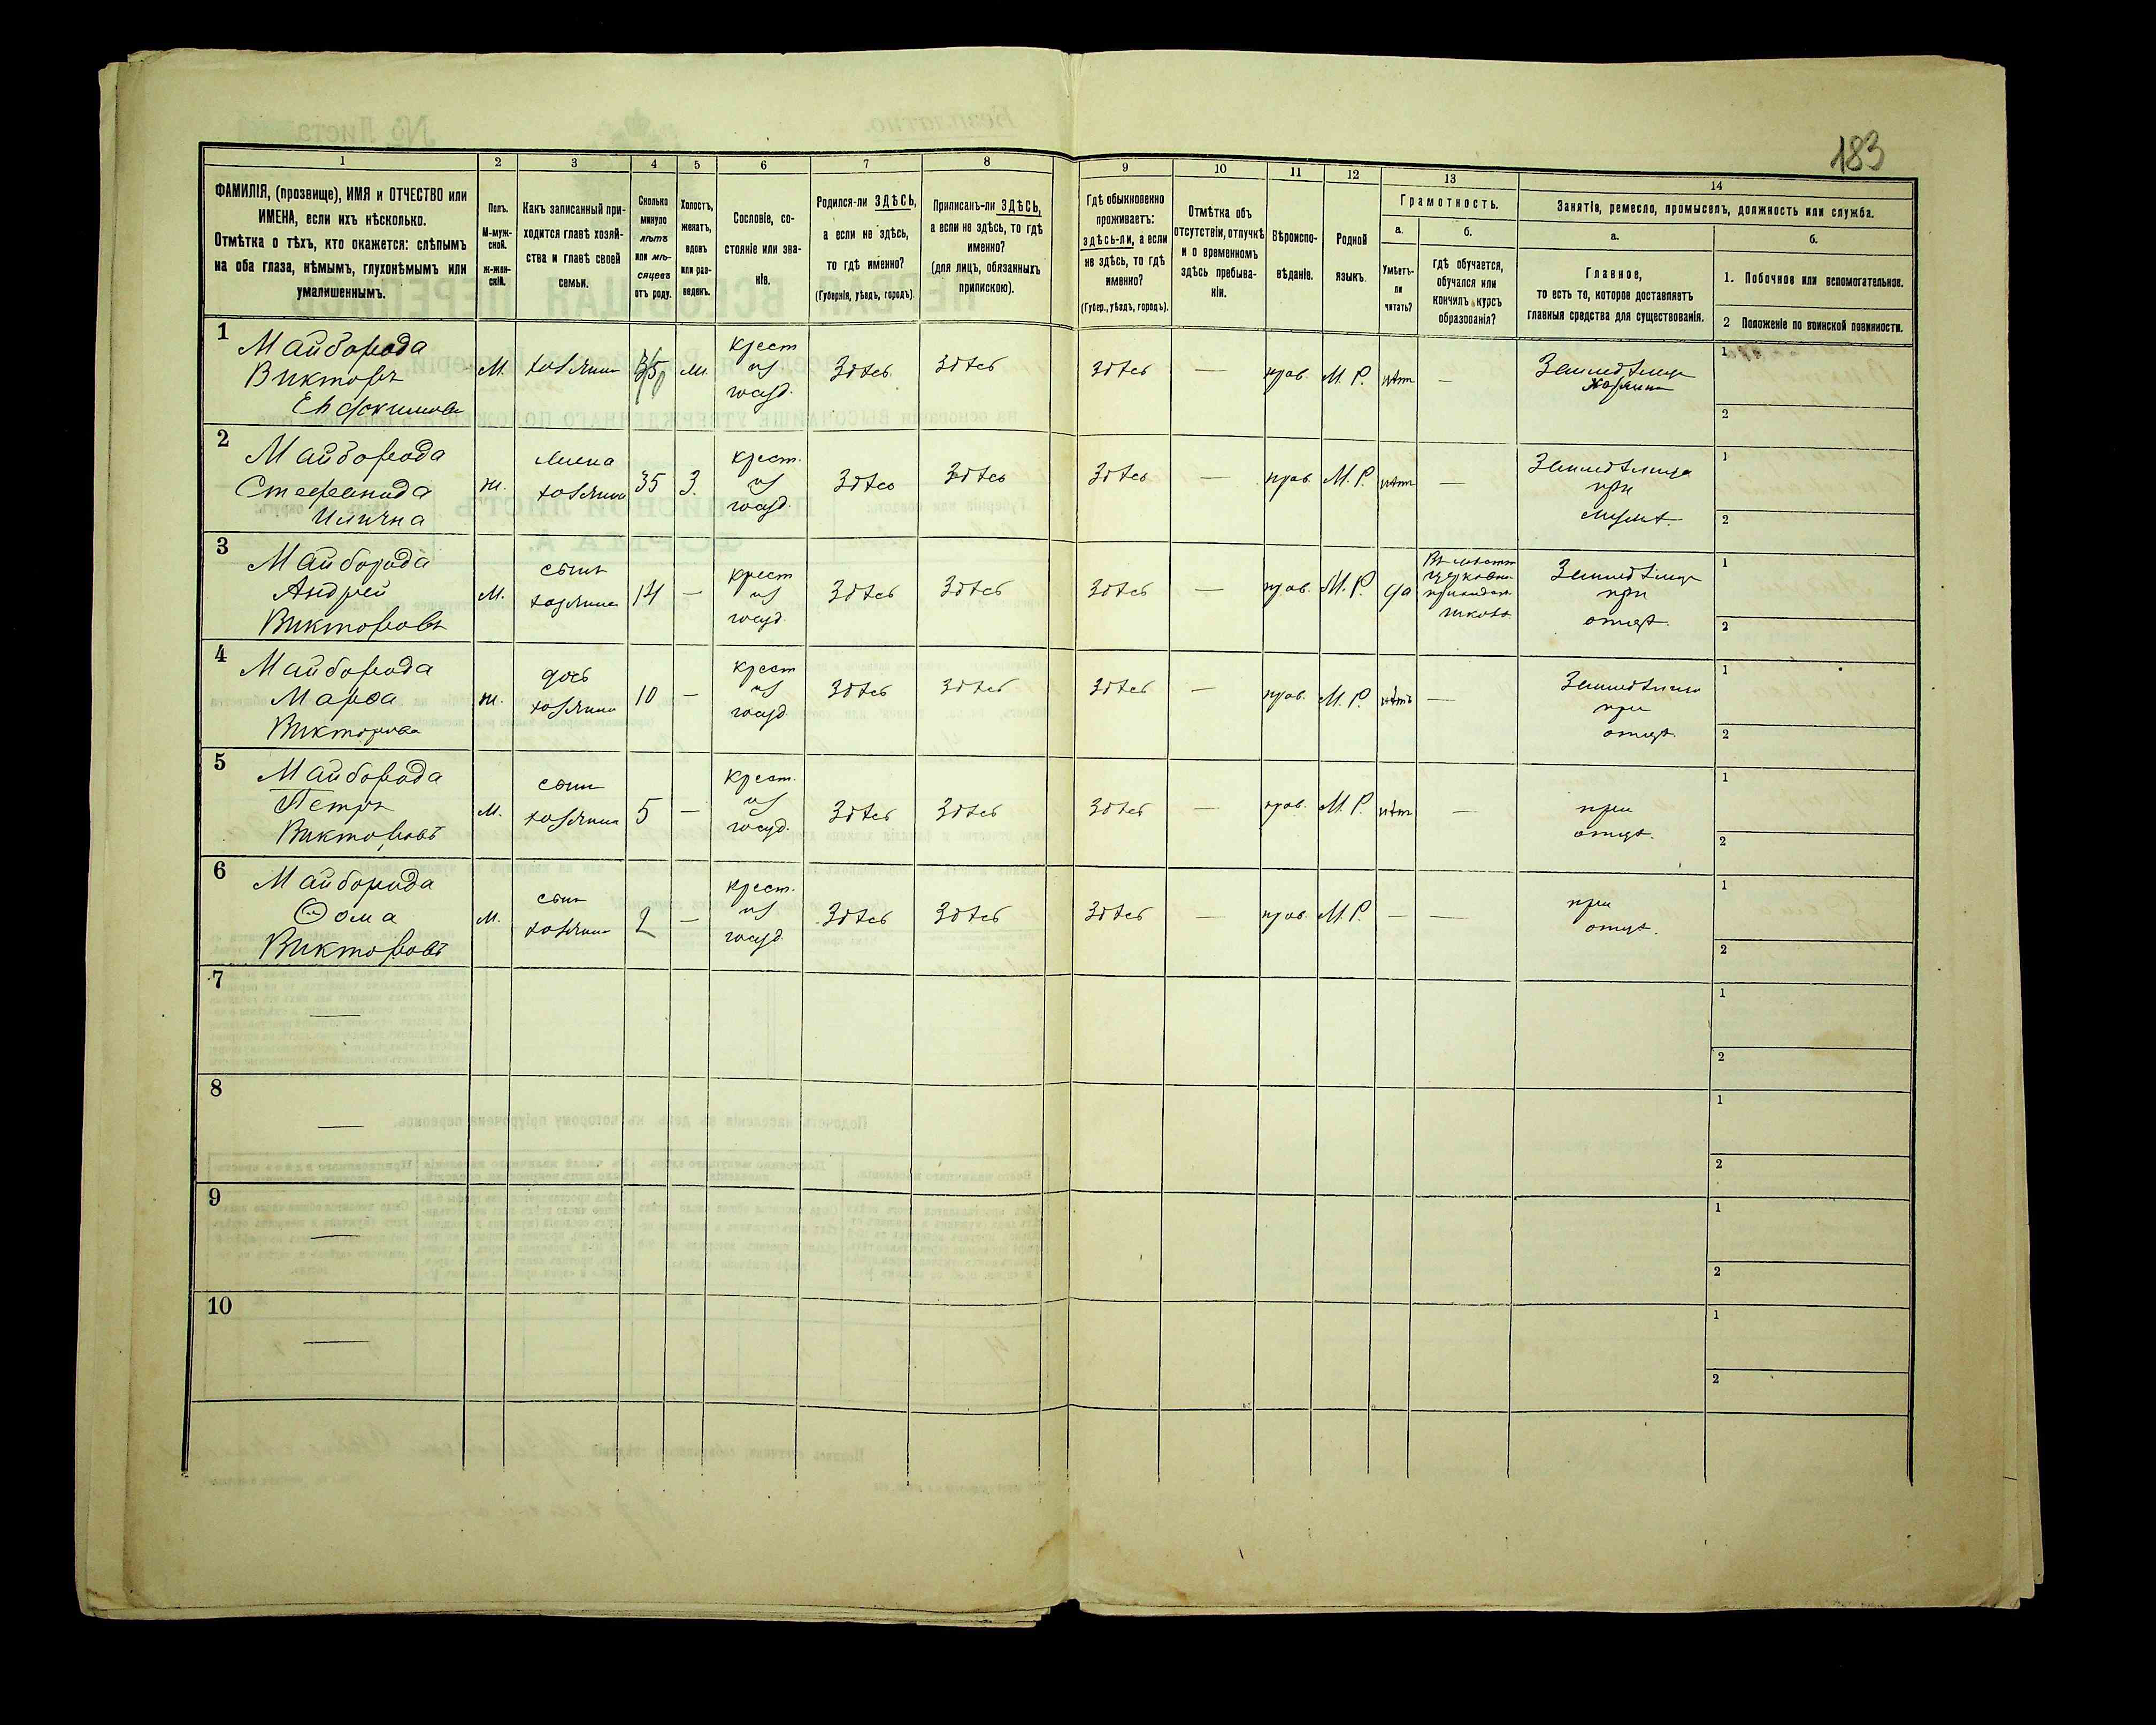 183
1 2 3 4 5 6 7 8 9 10 11 12 13 14
ФАМИЛІЯ, (прозвище), ИМЯ и ОТЧЕСТВО или
ИМЕНА, если ихъ нѣсколько.
Отмѣтка о тѣхъ, кто окажется: слѣпымъ
на оба глаза, нѣмымъ, глухонѣмымъ или
умалишеннымъ.
Полъ.
М-муж-
ской.
ж-жен-
скій.
Какъ записанный при-
ходится главѣ хозяй-
ства и главѣ своей
семьи.
Сколько
минуло
лѣтъ
или мѣ-
сяцевъ
отъ роду.
Холостъ,
женатъ,
вдовъ
или раз-
веденъ.
Сословіе, со-
стояніе или зва-
ніе.
Родился-ли ЗДѢСЬ,
а если не здѣсь,
то гдѣ именно?
(Губернія, уѣздъ, городъ).
Приписанъ-ли ЗДѢСЬ,
а если не здѣсь, то гдѣ
именно?
(для лицъ, обязанныхъ
припискою).
Гдѣ обыкновенно
проживаетъ:
здѣсь-ли, а если
не здѣсь, то гдѣ
именно?
(Губер., уѣздъ, городъ).
Отмѣтка объ
отсутствіи, отлучкѣ
и о временномъ
здѣсь пребыва-
ніи.
Вѣроиспо-
вѣданіе.
Родной
языкъ.
Грамотность.
а.
Умѣетъ-
ли
читать?
б.
гдѣ обучается,
обучался или
кончилъ курсъ
образованія?
Занятія, ремесло, промыселъ, должность или служба.
а.
Главное,
то есть то, которое доставляетъ
главныя средства для существованія.
б.
1. Побочное или вспомогательное.
2 Положеніе по воинской повинности.
1
Майборода
Викторъ
М.
хозяинъ
крест
из
госуд.
Здѣсь
Здѣсь
Здѣсь
—
прав.
М. Р.
нѣтъ
—
Земледѣлецъ
хозяинъ
1
2
2
Майборода
Стефанида
Илична
ж.
жена
хозяина
35
З.
крест.
из
госуд.
Здѣсь
Здѣсь
Здѣсь
—
прав.
М. Р.
нѣтъ
—
при
мужѣ.
1
2
3
Майборода
Андрей
Викторовъ
М.
сынъ
хозяина
14
—
крест
из
госуд.
Здѣсь
Здѣсь
Здѣсь
—
прав.
М. Р.
да
церковно
приходск
школѣ
Земледѣлецъ
при
отцѣ.
1
2
4
Майборода
Марѳа
Викторова
ж.
дочь
хозяина
10
—
крест
из
госуд.
Здѣсь
Здѣсь
Здѣсь
—
прав.
М. Р.
нѣтъ
—
при
отцѣ.
1
2
5
Майборода
Петръ
Викторовъ
М.
сынъ
хозяина
5
—
крест.
из
госуд.
Здѣсь
Здѣсь
Здѣсь
—
прав.
М. Р.
нѣтъ
—
при
отцѣ.
1
2
6
Майборода
Ѳома
Викторовъ
М.
сынъ
хозяина
2
—
крест.
из
госуд.
Здѣсь
Здѣсь
Здѣсь
—
прав.
М. Р.
—
—
при
отцѣ.
1
2
7
—
1
2
8
—
1
2
9
—
1
2
10
—
1
2